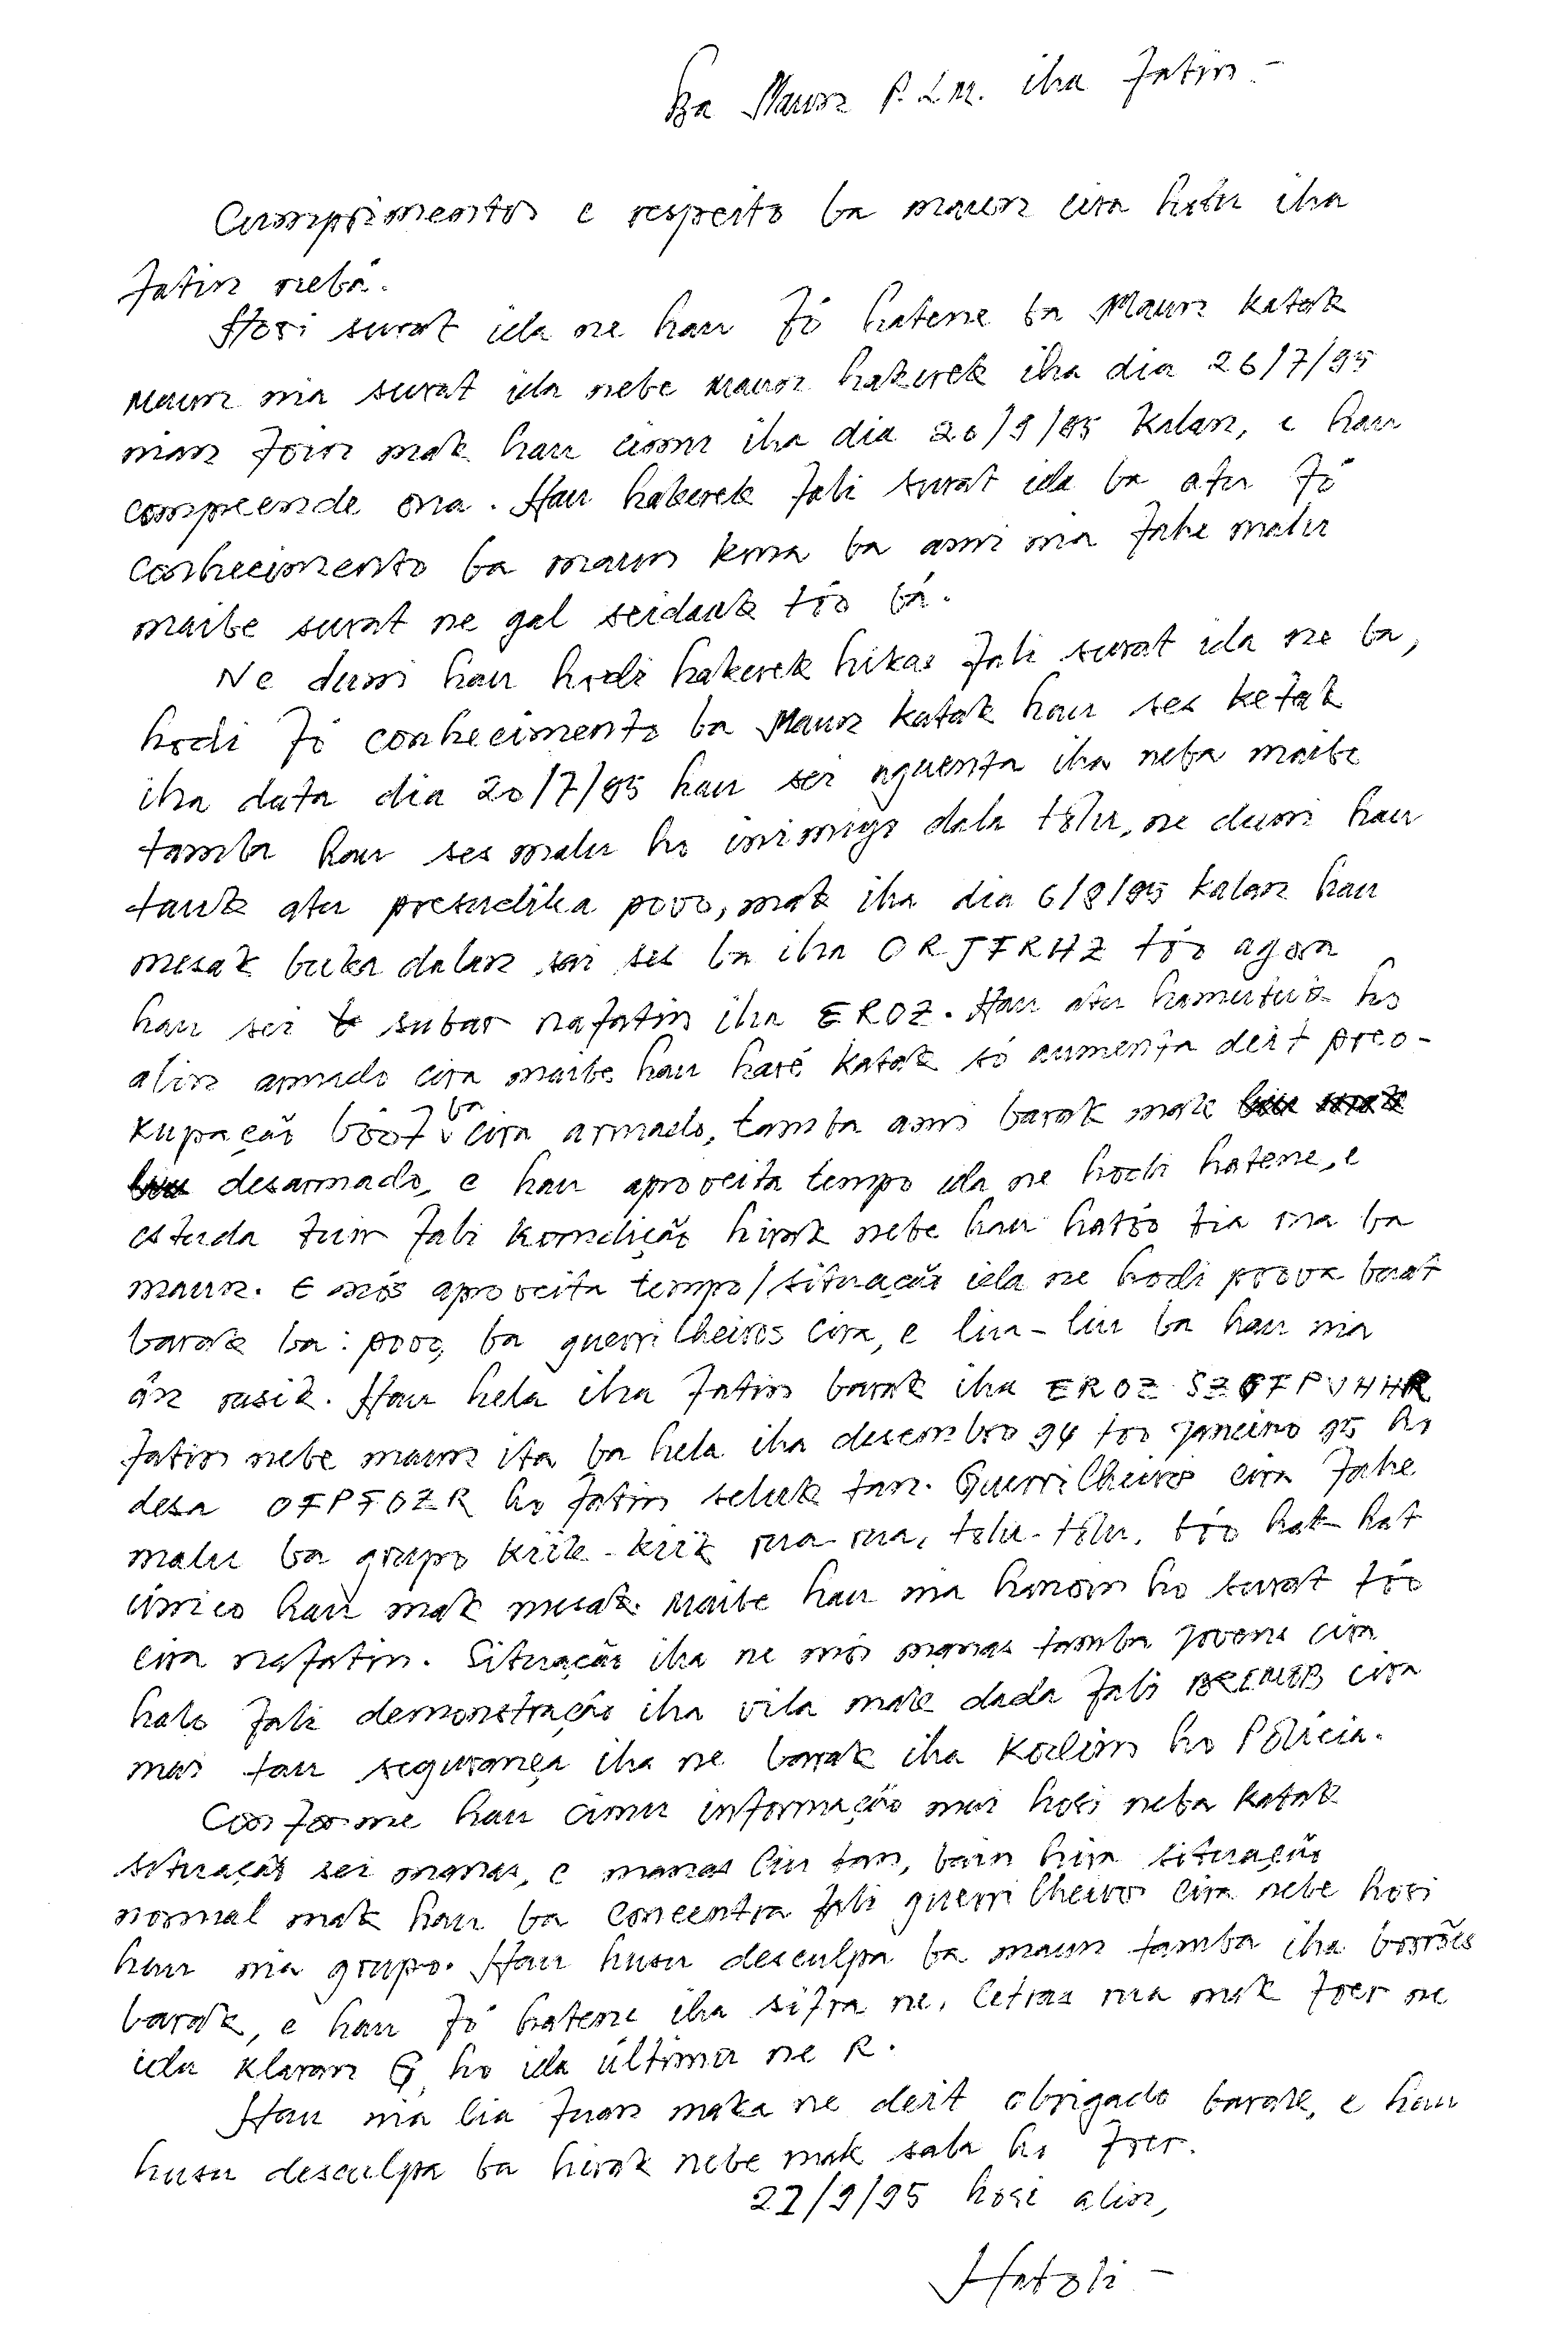 Ba Maun P.L.M. iha fatin-
Cumprimentos e respeito ba maun cira hotu iha
fatin nebá.
Hosi surat ida ne hau fó hatene ba Maun katak
Maun nia surat ida nebe Maun hakerek iha dia 26/7/95
nian foin mak hau cimu iha dia 20/9/95 kalan, e hau
compreende ona. Hau hakerek fali surat ida ba atu fó
conhecimento ba maun kona ba ami nia fahe malu
maibe surat ne gal seidauk tóo bá.
Ne duni hau hodi hakerek hikas fali surat ida ne ba,
hodi fó conhecimento ba Maun katak hau ses ketak
iha data dia 20/7/95 hau sei aguenta iha neba maibe
tamba hau ses malu ho inimigo dala tólu, ne duni hau
tauk atu presudika povo, mak iha dia 6/8/95 kalan hau
mesak buka dalan sai ses ba iha ORJFRHZ tóo agora
hau sei subar nafatin iha EROZ. Hau atu hamutuk ho
alin armado cira maibe hau haré katak só aumenta deit preo-
kupação bóot ba cira armado, tamba ami barak mak
desarmado, e hau aproveita tempo ida ne hodi hatene, e
estuda tuir fali kondição hirak nebe hau hatóo tia ona ba
maun. E mós aproveita tempo/situação ida ne hodi prova buat
barak ba: povo, ba guerrilheiros cira, e liu-liu ba hau nia
án rasik. Hau hela iha fatin barak iha EROZ SZGFPVHHR
fatin nebe maun ita ba hela iha desembro 94 too janeiro 95 ho
desa OFPFOZR ho fatin seluk tan. Guerrilheiros cira fahe
malu ba grupo kiik-kiik rua-rua, tolu-tólu, tóo hat-hat
único hau mak mesak. Maibe hau nia hanoin ho surat tóo
cira nafatin. Situação iha ne mós manas tamba jovens cira
halo fali demonstração iha vila mak dada fali BRIMOB cira
mai tau segurança iha ne barak iha Kodim ho Polícia.
Conforme hau cimu informação mai hosi neba katak
situação sei manas, e manas liu tan, bain hira situação
normal mak hau ba concentra fali guerrilheiros cira nebe hosi
hau nia grupo. Hau husu desculpa ba maun tamba iha borrões
barak, e hau fó hatene iha sifra ne, letras rua mak foer ne
ida klaran G, ho ida última ne R.
Hau nia lia fuan maka ne deit obrigado barak, e hau
husu desculpa ba hirak nebe mak sala ho foer.
21/9/95 hosi alin,
Hatoli-